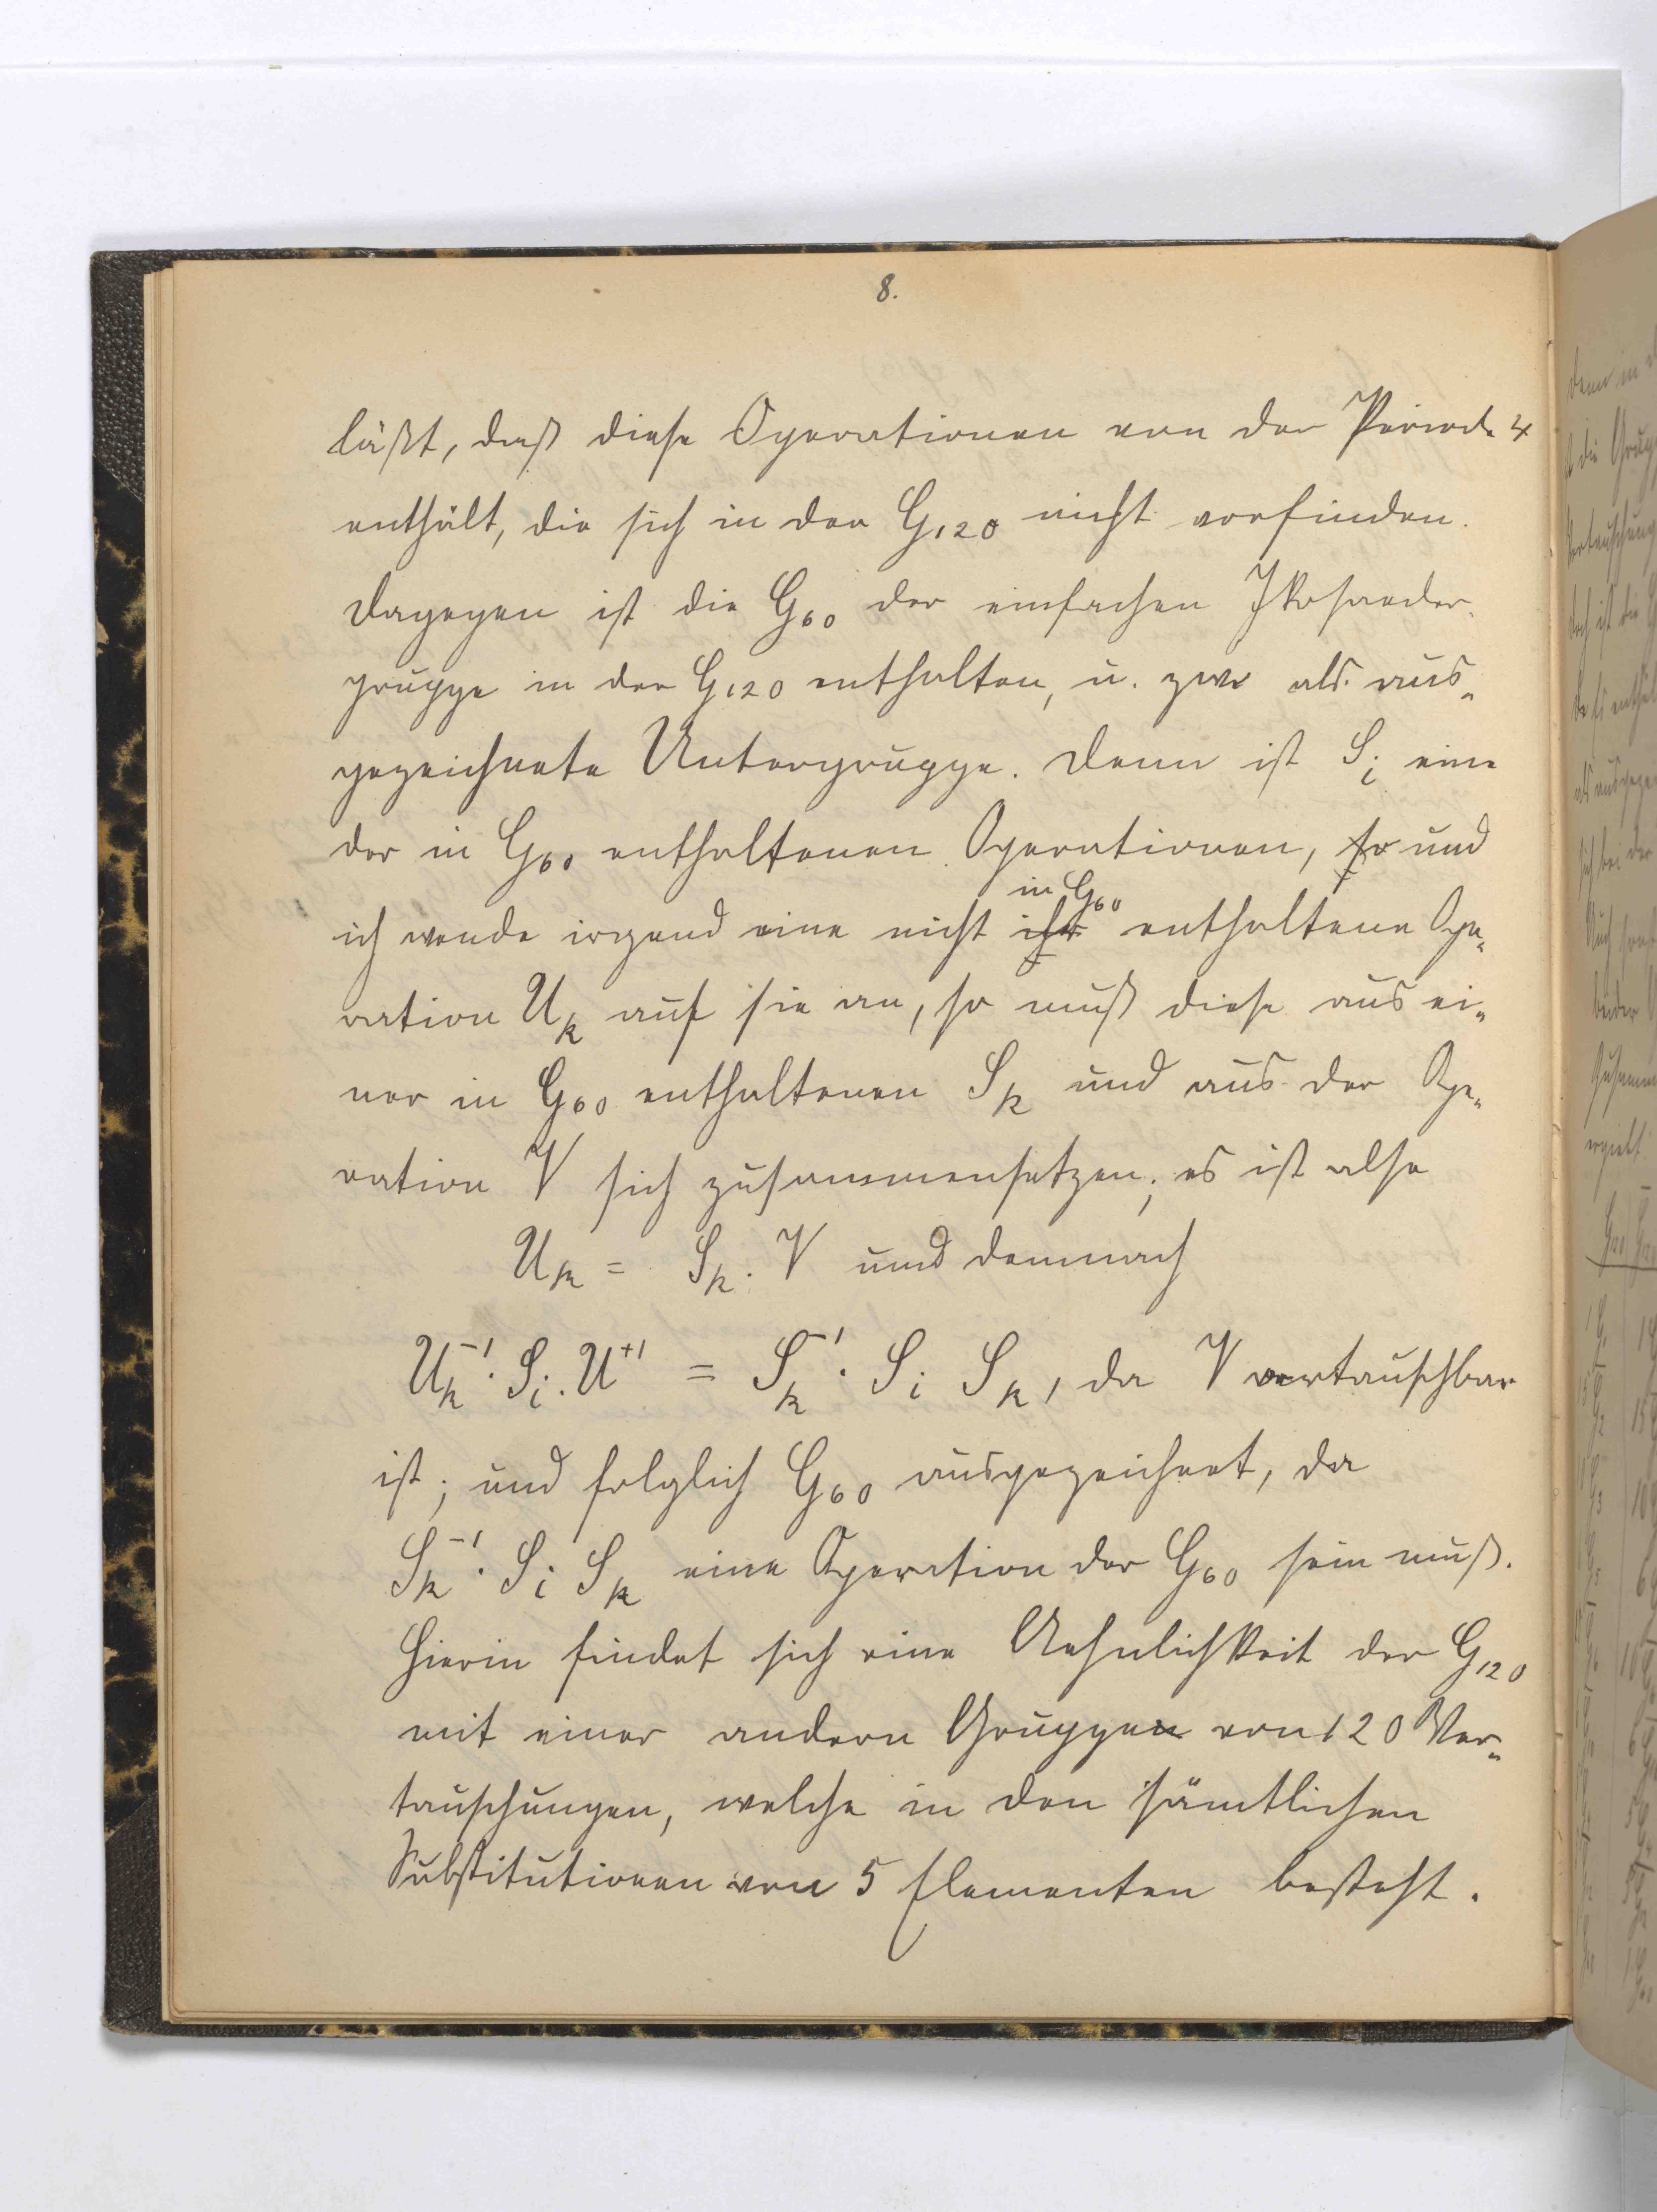 8.
läßt, daß diese Operationen von der Periode 4
enthält, die sich in der G₁₂₀ nicht vorfinden.
Dagegen ist die G₆₀ der einfachen Ikosaeder-
gruppe in der G₁₂₀ enthalten, u. zwr als aus-
gezeichnete Untergruppe. Denn ist Sᵢ eine
der in G₆₀ enthaltenen Operationen, so und
in G₆₀
ich wende irgend eine nicht ihr enthaltene Ope-
ration Uₖ auf sie an, so muß diese aus ei-
ner in G₆₀ enthaltenen Sₖ und aus der Ope-
ration V sich zusammensetzen; es ist also
Uₖ = Sₖ. V und demnach
Uₖ⁻¹. Sᵢ. U⁺¹ = Sₖ⁻¹. Sᵢ Sₖ, da V vertauschbar
ist; und folglich G₆₀ ausgezeichnet, da
Sₖ⁻¹. Sᵢ Sₖ eine Operation der G₆₀ sein muß.
Hierin findet sich eine Aehnlichkeit der G₁₂₀
mit einer andern Gruppen von 120 Ver-
tauschungen, welche in den sämtlichen
Substitutionen von 5 Elementen besteht.